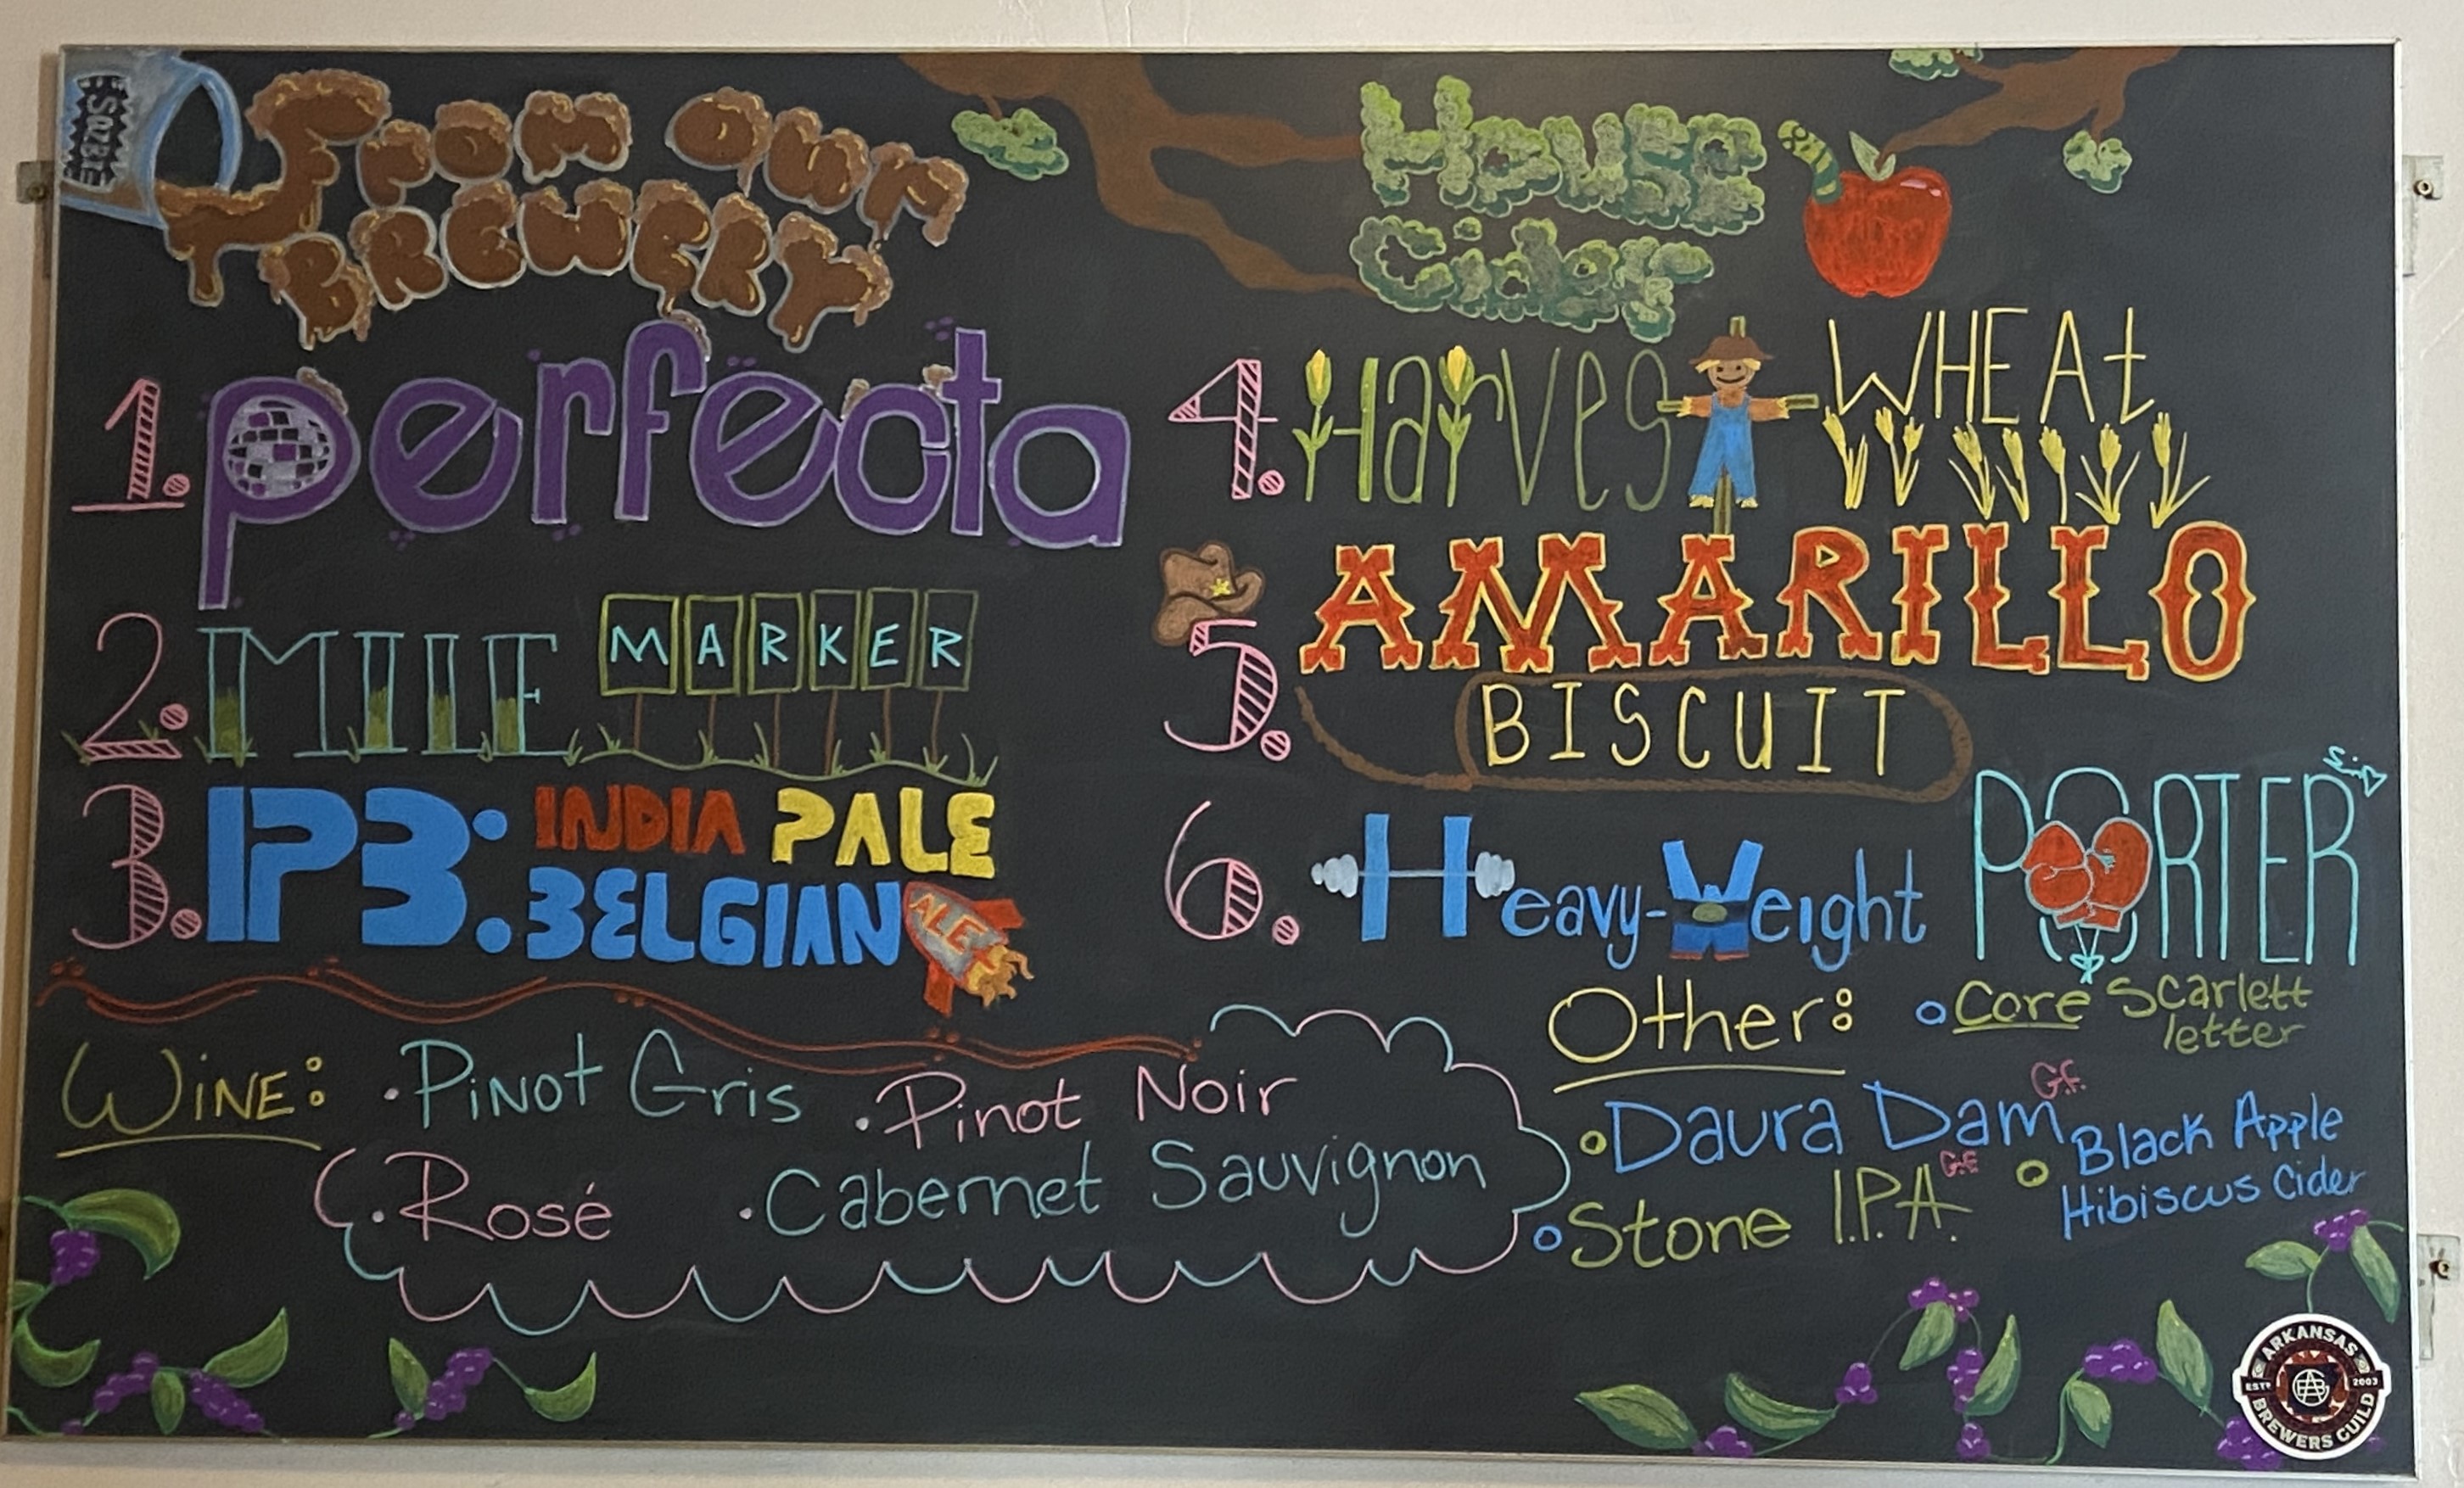 SABRE
FROM OUR
BREWERY
1. perfecta
2. MILE MARKER
3. IPB: INDIA PALE
BELGIAN ALE
House
Cider
4. Harvest WHEAt
5. AMARILLO
BISCUIT
6. Heavy-Weight PORTER
WINE: • PINOT Gris • Pinot Noir
• Rosé • Cabernet Sauvignon
Other: • Core Scarlett
letter
• Daura Dam G.F.
• Stone I.P.A. G.F.
• Black Apple
Hibiscus Cider
ARKANSAS
ESTD 2003
BREWERS GUILD